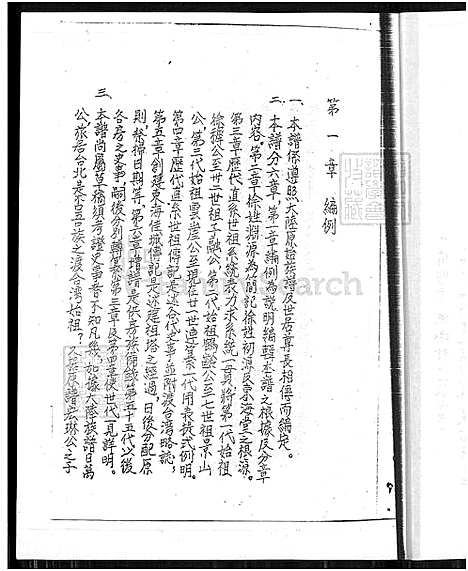 第一章 編例
一、本譜係遵照大陸原諳族譜及世居尊長相傳而編定。
二、本譜分六章,第一章編例為說明編輯本譜之根據及分章
內容。第二章徐姓淵源為簡記徐姓初源及東海堂之根源。
第三章歷代直系世祖系統表力求系統一貫將第一代始祖
徐穆公至卅二世祖子融公,第二代始祖 公至七世祖景山
公,第三代始祖雲崖公至現在廿一世迪 代用表裝式例明。
第四章歷代直系世祖傳記是述各代史事並附渡台灣略誌,
第五章創建東海佳城傳記是述建祖塔之經過,日後分配原
則祭掃日期等。第六章 譜是供各房族 錄第五十五代以後
各房之史事,嗣後分別歸 第三章及第四章使世代一見詳明。
三、本譜尚屬草稿須考證史事者不知凡幾,如據大陸族譜日萬
公,旅居台北是否吾族之渡台灣始祖?又孫原譜宏琳公之子